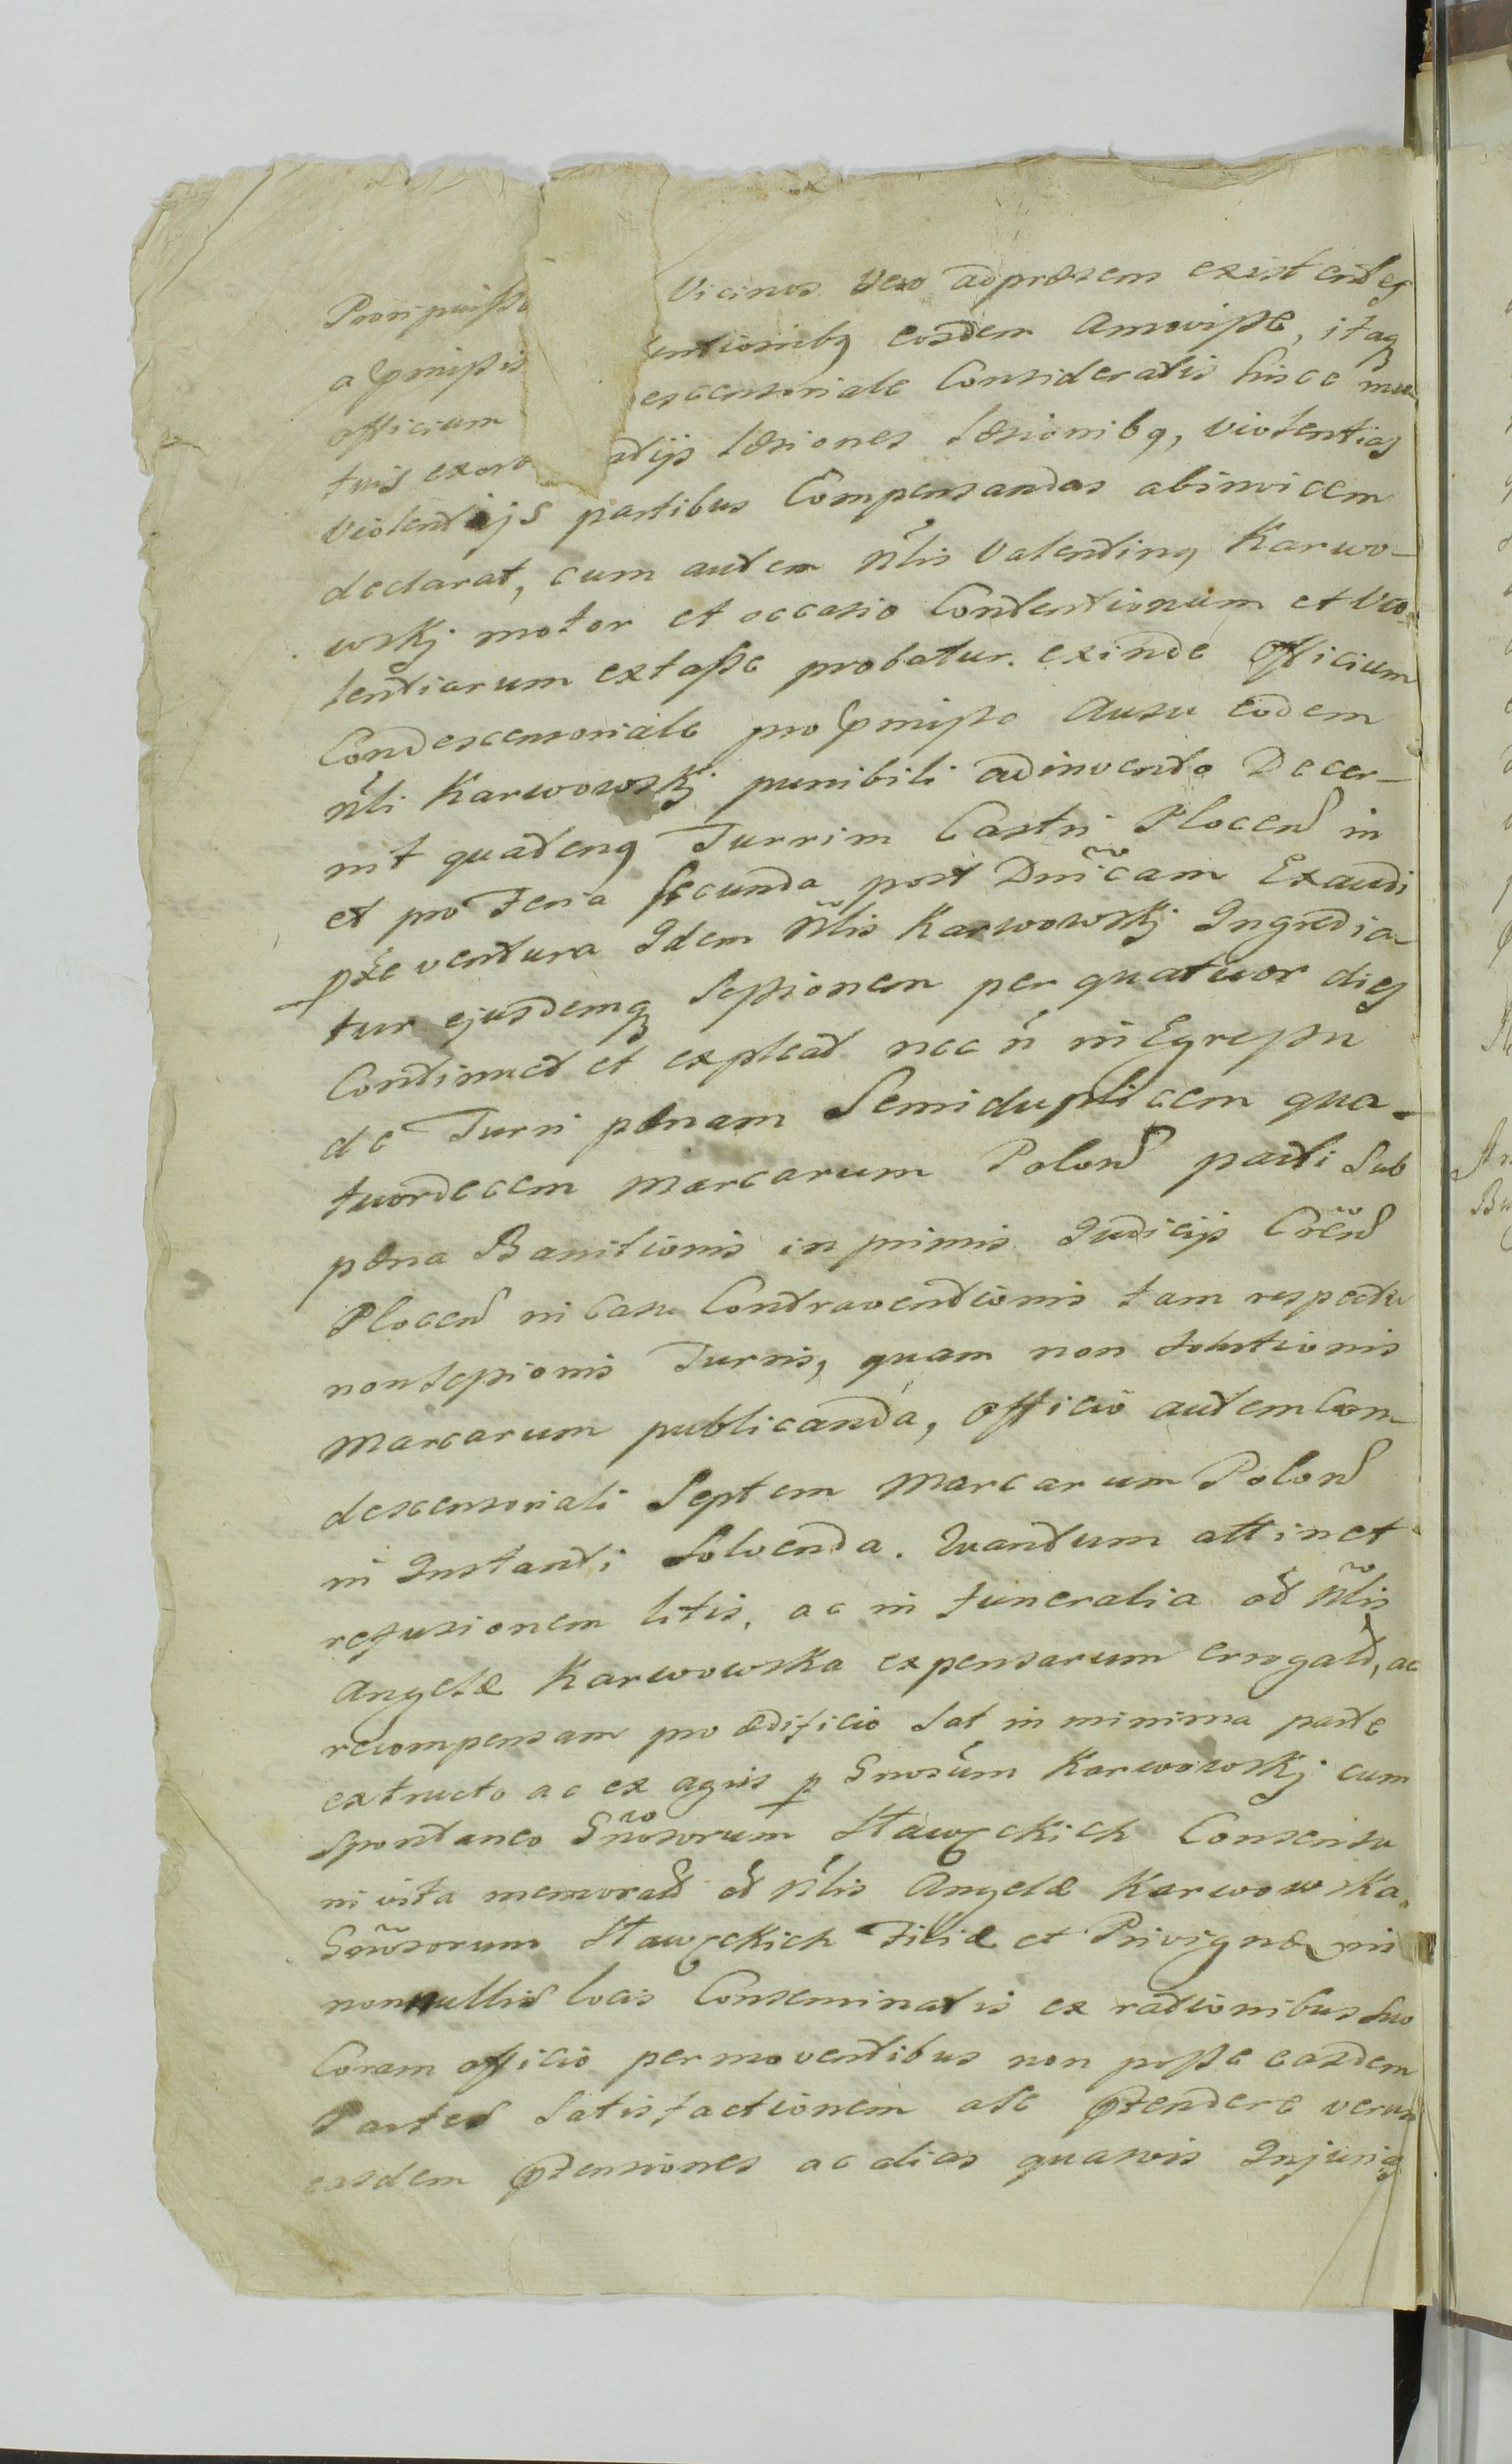 Proripuisse Vicinos Vero ad præsens existentes
a præmissis entionibq eosdem Amovisse, itaq
officium escensoriale Consideratis hisce mu
tuis exor atijs læsiones læsionibq, violentias
Violentijs partibus Compensandas abinvicem
declarat, cum autem Nlis Valentinq Karwo-
wskj motor et occasio Contentionum et Vio-
lentiarum extasse probatur. exinde officium
Condescensoriale pro præmisso Ausu eodem
Nli Karwowskj punibili adinvento Decer-
nit quatenq Turrim Castri Plocen in
et pro Feria secunda post Dnicam Exaudi
pxe ventura Idem Nlis Karwowskj Ingredia-
tur ejusdemq sessionem per quatuor dies
Continuet et expleat nec n in Egressu
de Turri pænam Semiduplicem qua-
tuordecem Marcarum Polon parti Sub
pæna Banitionis in primis Judicijs Cren
Plocen in Casu Contraventionis tam respectu
non sessionis Turris, quam non solutionis
Marcarum publicanda, officio autem Con-
descensoriali Septem Marcarum Polon
in Instanti Solvenda. Quantum attinet
refusionem litis, ac in funeralia od Nlis
Angelæ Karwowska expensarum errogat, ac
recompensam pro ædificio sat in minima parte
extructo ac ex agris p Gnosum Karwowskj cum
Spontaneo Gnosorum Staweckich Consensu
in vita memorat od Nlis Angelæ Karwowska
Gnosorum Staweckich Filiæ et Privignæ in
nonnullis locis Conseminatis ex rationibus suo
Coram officio permoventibus non posse easdem
Partes Satisfactionem a se prætendere verum
easdem prætensiones ac alias quasvis Injurias